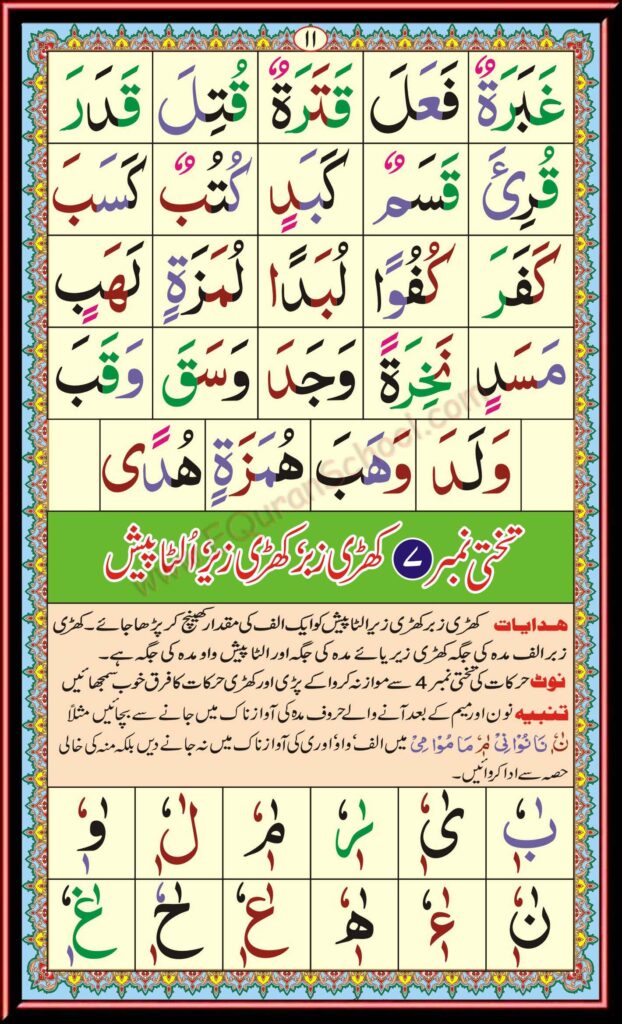 ۱۱
غَبَرَةٌ فَعَلَ قَتَرَةٌ قُتِلَ قَدَرَ
قُرِئَ قَسَمٌ كَبَدٍ كُتُبٌ كَسَبَ
كَفَرَ كُفُوًا لُبَدًا لُمَزَةٍ لَهَبٍ
مَسَدٍ نَخِرَةً وَجَدَ وَسَقَ وَقَبَ
وَلَدَ وَهَبَ هُمَزَةٍ هُدًى
تختی نمبر ۷ کھڑی زبر، کھڑی زیر، اُلٹا پیش
ھدایات کھڑی زبر کھڑی زیر الٹا پیش کو ایک الف کی مقدار کھینچ کر پڑھا جائے۔ کھڑی
زبر الف مدہ کی جگہ کھڑی زیر یائے مدہ کی جگہ اور الٹا پیش واو مدہ کی جگہ ہے۔
نوٹ حرکات کی تختی نمبر 4 سے موازنہ کروا کے پڑی اور کھڑی حرکات کا فرق خوب سمجھائیں
تنبیہ نون اور میم کے بعد آنے والے حروف مدہ کی آواز ناک میں جانے سے بچائیں مثلاً
نٰ نَا نُوْا نِیْ مٰ مَا مُوْا مِیْ میں الف، واو، اور ی کی آواز ناک میں نہ جانے دیں بلکہ منہ کی خالی
حصہ سے ادا کروائیں۔
بٰ یٰ رٰ مٰ لٰ وٰ
نٰ ءٰ هٰ عٰ حٰ غٰ
www.EQuranSchool.com